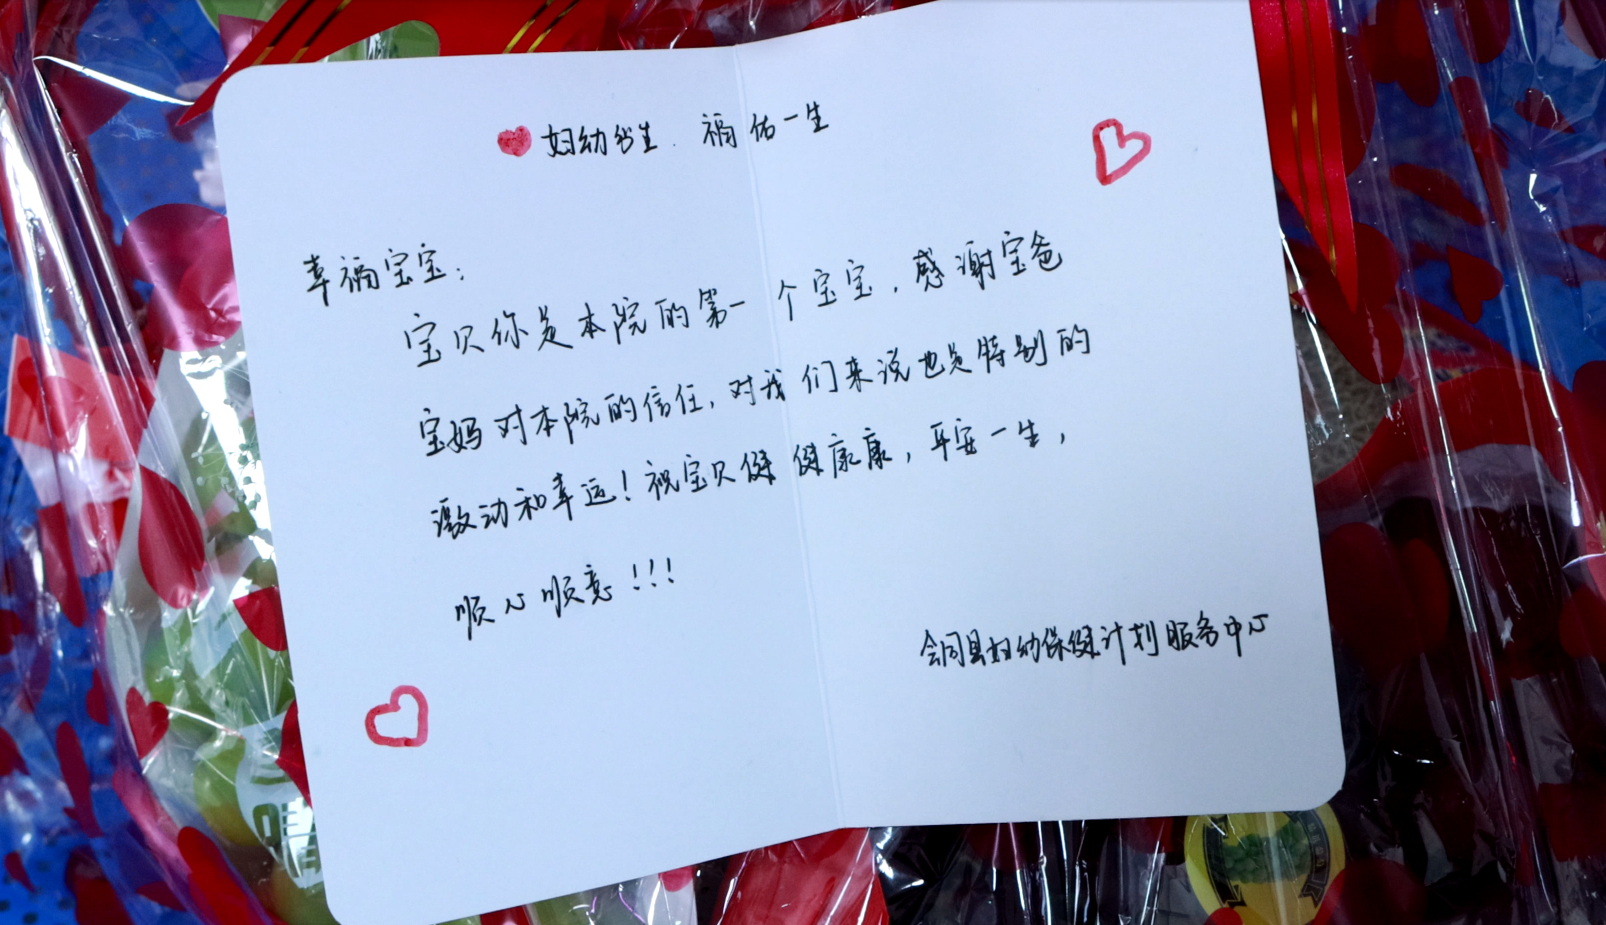 妇幼出生.福佑一生
幸福宝宝：
宝贝你是本院的第一个宝宝，感谢宝爸
宝妈对本院的信任，对我们来说也是特别的
激动和幸运！祝宝贝健健康康，平安一生，
顺心顺意！！！
会同县妇幼保健计划服务中心